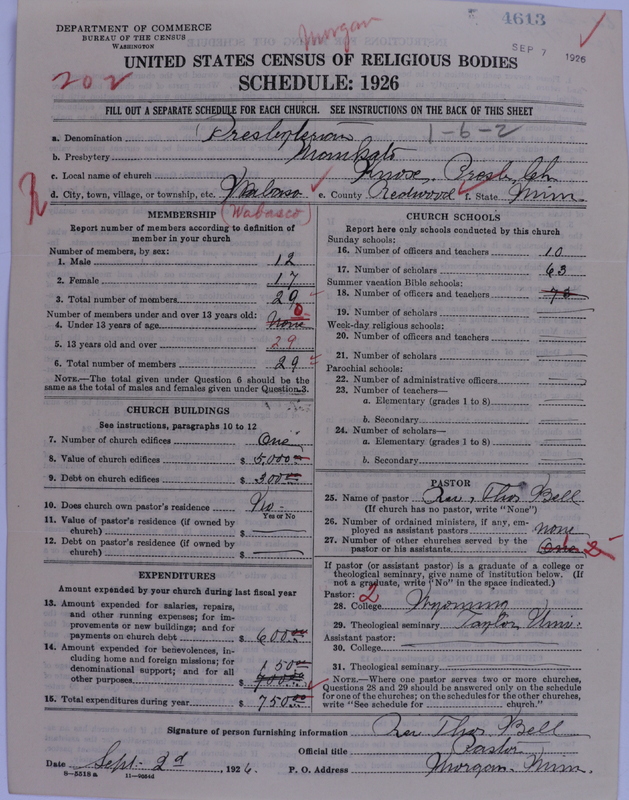 4613
DEPARTMENT OF COMMERCE
BUREAU OF THE CENSUS
WASHINGTON
Morgan
SEP 7 1926
UNITED STATES CENSUS OF RELIGIOUS BODIES
202
SCHEDULE: 1926
FILL OUT A SEPARATE SCHEDULE FOR EACH CHURCH. SEE INSTRUCTIONS ON THE BACK OF THIS SHEET
a. Denomination Presbyterian 1-6-2
b. Presbytery Mankato
c. Local name of church Knox Presb. Ch
d. City, town, village, or township, etc. Wabasso e. County Redwood f. State Minn.
MEMBERSHIP (Wabasco)
Report number of members according to definition of
member in your church
Number of members, by sex:
1. Male 12
2. Female 17
3. Total number of members 29
Number of members under and over 13 years old: 0
4. Under 13 years of age None
5. 13 years old and over 29
6. Total number of members 29
NOTE.—The total given under Question 6 should be the
same as the total of males and females given under Question 3.
CHURCH BUILDINGS
See instructions, paragraphs 10 to 12
7. Number of church edifices One
8. Value of church edifices $ 5,000.00
9. Debt on church edifices $ 300.00
10. Does church own pastor's residence No
Yes or No
11. Value of pastor's residence (if owned by
church) $
12. Debt on pastor's residence (if owned by
church) $
EXPENDITURES
Amount expended by your church during last fiscal year
13. Amount expended for salaries, repairs,
and other running expenses; for im-
provements or new buildings; and for
payments on church debt $ 600.00
14. Amount expended for benevolences, in-
cluding home and foreign missions; for
denominational support; and for all 150.00
other purposes $
15. Total expenditures during year $ 750.00
CHURCH SCHOOLS
Report here only schools conducted by this church
Sunday schools:
16. Number of officers and teachers 10
17. Number of scholars 63
Summer vacation Bible schools:
18. Number of officers and teachers 73
19. Number of scholars
Week-day religious schools:
20. Number of officers and teachers
21. Number of scholars
Parochial schools:
22. Number of administrative officers
23. Number of teachers—
a. Elementary (grades 1 to 8)
b. Secondary
24. Number of scholars—
a. Elementary (grades 1 to 8)
b. Secondary
PASTOR
25. Name of pastor Rev. Thos Bell
(If church has no pastor, write "None")
26. Number of ordained ministers, if any, em-
ployed as assistant pastors none
27. Number of other churches served by the
pastor or his assistants One 2
If pastor (or assistant pastor) is a graduate of a college or
theological seminary, give name of institution below. (If
not a graduate, write "No" in the space indicated.)
Pastor: 2
28. College Wyoming
29. Theological seminary Taylor Univ.
Assistant pastor:
30. College
31. Theological seminary
NOTE.—Where one pastor serves two or more churches,
Questions 28 and 29 should be answered only on the schedule
for one of the churches; on the schedules for the other churches,
write "See schedule for church."
Signature of person furnishing information Rev Thos Bell
Official title Pastor
Date Sept. 2d, 1926. P. O. Address Morgan. Minn.
8-5518a 11-9554d